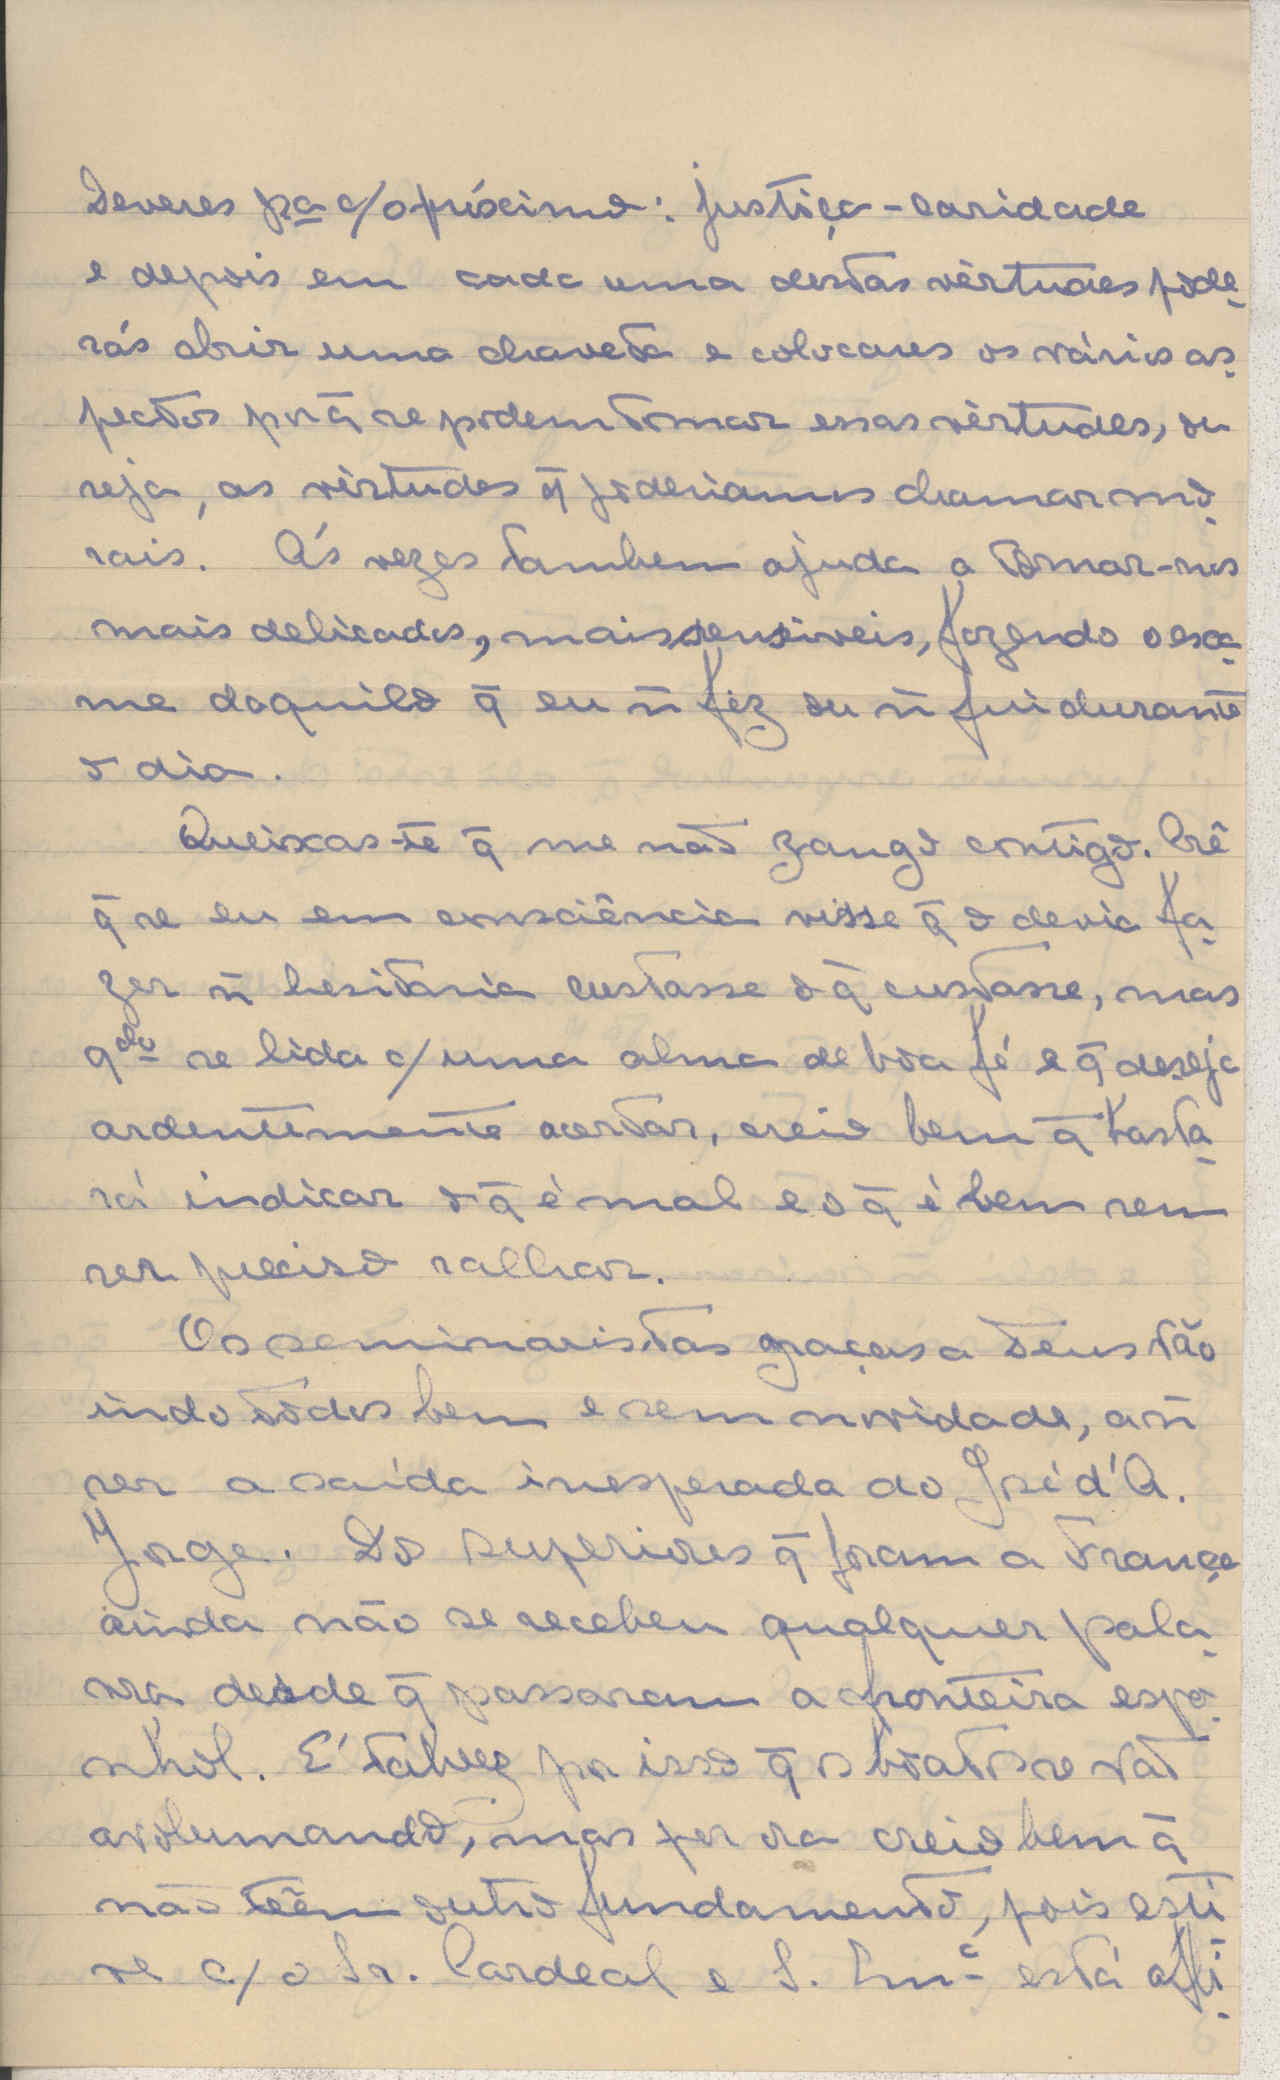 Deveres pª c/o próximo: justiça - caridade
e depois em cada uma destas vèrtudes pode-
rás abrir uma chaveta e colocares os vários as-
pectos por q̄ se podem tomar essas vèrtudes, ou
seja, as vèrtudes q̄ poderiamos chamar mo-
rais. Ás vezes tambem ajuda a tornar-nos
mais delicados, mais sensiveis, fazendo o exa-
me daquilo q̄ eu ñ fiz ou ñ fui durante
o dia.
Queixas-te q̄ me não zango contigo. Crê
q̄ se eu em consciência visse q̄ o devia fa-
zer ñ hesitaria custasse o q̄ custasse, mas
qdo se lida c/ uma alma de boa fé e q̄ deseja
ardentemente acertar, creio bem q̄ basta-
rá indicar o q̄ é mal e o q̄ é bem sem
ser preciso ralhar.
Os seminaristas graças a Deus vão
indo todos bem e sem novidade, a ñ
ser a saída inesperada do José d'A.
Jorge. Dos superiores q̄ foram a França
ainda não se recebeu qualquer pala-
vra desde q̄ passaram a fronteira espa-
nhol. É talvez por isso q̄ os boatos se vão
avolumando, mas por ora creio bem q̄
não teêm outro fundamento, pois esti
ve c/o Sr. Cardeal e S. Emª está opti-